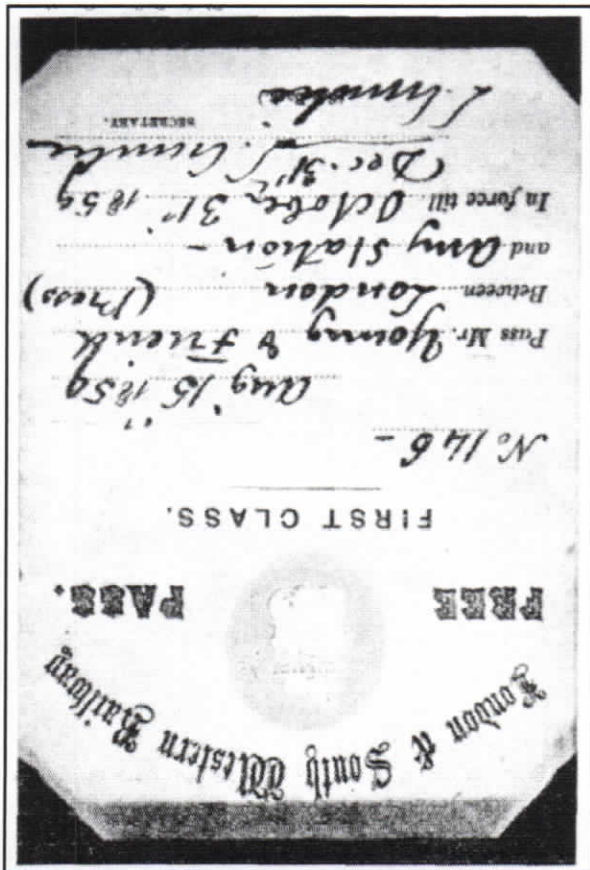 London & South Western Railway
FREE PASS.
FIRST CLASS.
No 146 -
Aug 15" 1859
Pass Mr. Young & Friend
Between London (Press)
and Any Station -
In force till October 31st 1859
(Dec. 31st
SECRETARY.